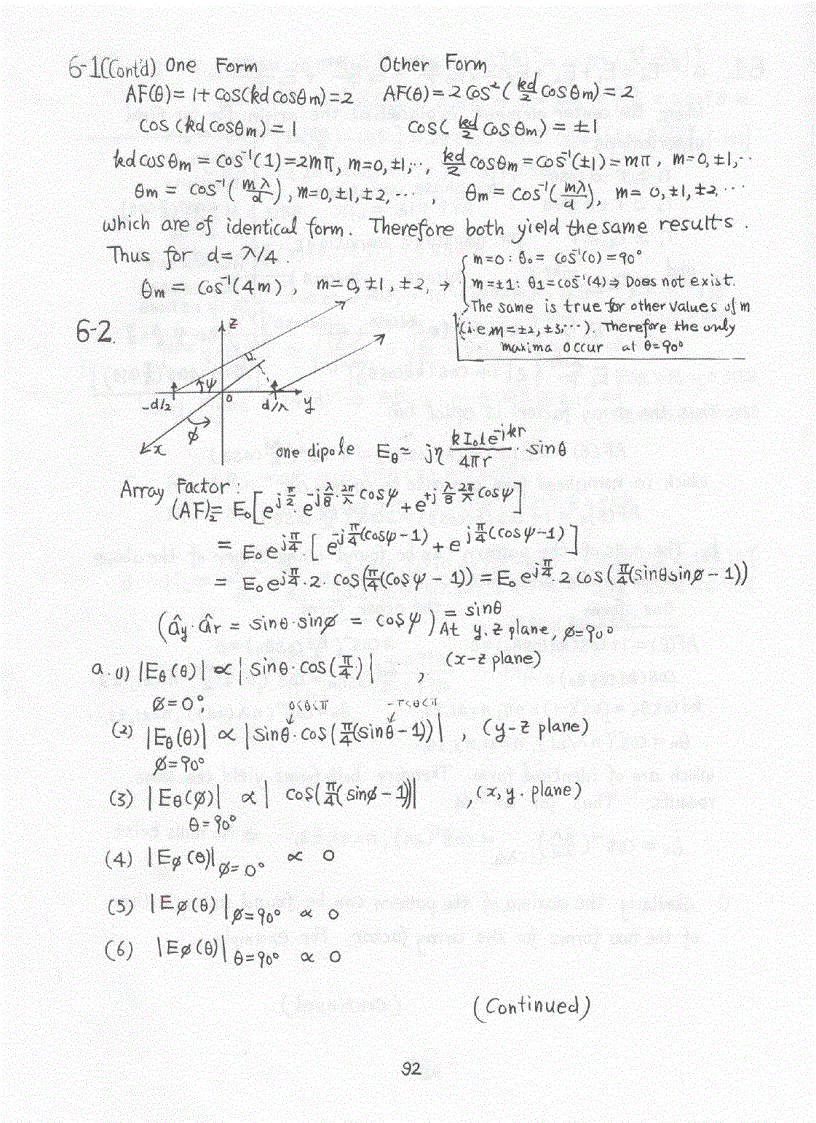 6-1(Cont'd) One Form Other Form
AF(θ) = 1 + cos(kd cosθm) = 2 AF(θ) = 2 cos²(kd/2 cosθm) = 2
cos(kd cosθm) = 1 cos(kd/2 cosθm) = ±1
kd cosθm = cos⁻¹(1) = 2mπ, m=0,±1,..., kd/2 cosθm = cos⁻¹(±1) = mπ, m=0,±1,...
θm = cos⁻¹(mλ/d), m=0,±1,±2,..., θm = cos⁻¹(mλ/d), m= 0,±1,±2,...
which are of identical form. Therefore both yield the same results.
Thus for d = λ/4.
θm = cos⁻¹(4m), m=0,±1,±2, →
m=0: θ₀ = cos⁻¹(0) = 90°
m=±1: θ₁ = cos⁻¹(4) ⇒ Does not exist.
The same is true for other values of m
(i.e. m=±2,±3,...). Therefore the only
maxima occur at θ=90°
6-2.
z
ψ
-d/2 0 d/λ y
φ
x
one dipole Eθ ≃ jη kI₀le^-jkr/4πr · sinθ
Array Factor:
(AF)₂ = E₀[e^jπ/2 · e^-jλ/8·2π/λ cosψ + e^+jλ/8·2π/λ cosψ]
= E₀e^jπ/4 [e^-jπ/4(cosψ-1) + e^jπ/4(cosψ-1)]
= E₀e^jπ/4 · 2 · cos(π/4(cosψ - 1)) = E₀e^jπ/4 · 2 cos(π/4(sinθ sinφ - 1))
(ây · âr = sinθ · sinφ = cosψ) = sinθ At y.z plane, φ=90°
a. (1) |Eθ(θ)| ∝ |sinθ · cos(π/4)|, (x-z plane)
φ=0°
0<θ<π -π<θ<π
(2) |Eθ(θ)| ∝ |sinθ · cos(π/4(sinθ-1))|, (y-z plane)
φ=90°
(3) |Eθ(φ)| ∝ |cos(π/4(sinφ-1))|, (x,y. plane)
θ=90°
(4) |Eφ(θ)| φ=0° ∝ 0
(5) |Eφ(θ)| φ=90° ∝ 0
(6) |Eφ(θ)| θ=90° ∝ 0
(Continued)
92